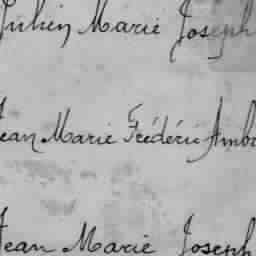 Julien Marie Joseph
Jean Marie Frédéric Ambr
Jean Marie Joseph